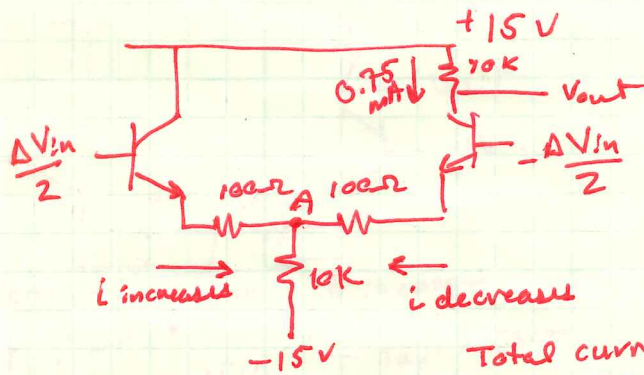 +15V
10K
0.75
mA
Vout
ΔVin
2
-ΔVin
2
100Ω
A
100Ω
i increases
10K
i decreases
-15V
Total curr